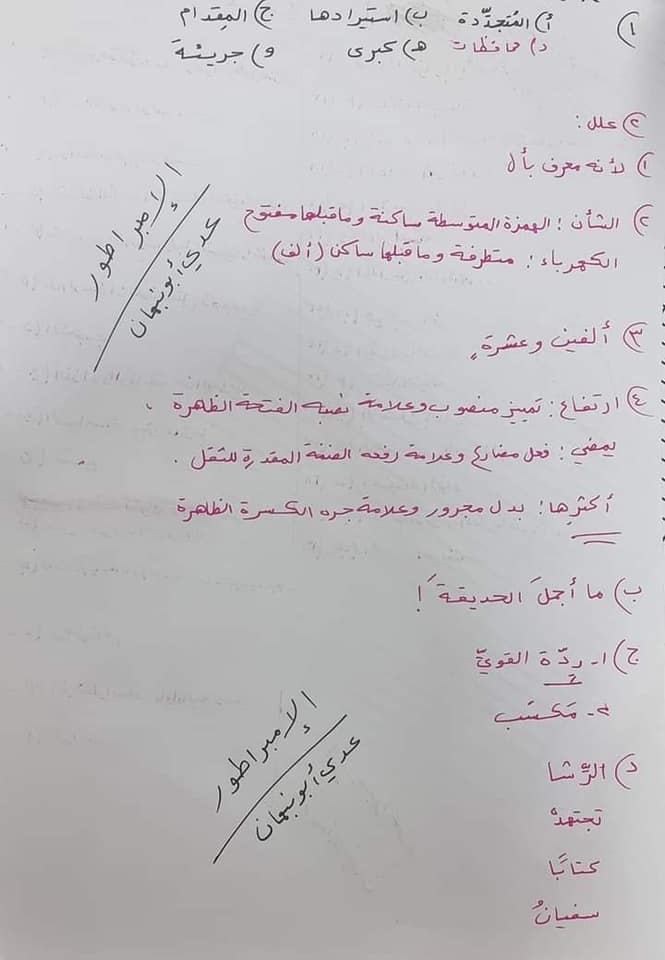 ١) أ) المُتجدِّدة ب) استيرادها ج) المِقدام
د) محافظات هـ) كبرى و) جريئة
٢) علل:
١) لأنه معرف بأل
٢) الشأن: الهمزة المتوسطة ساكنة وما قبلها مفتوح
الكهرباء: متطرفة وما قبلها ساكن (ألف)
٣) ألفين وعشرةٍ
٤) ارتفاع: تمييز منصوب وعلامة نصبه الفتحة الظاهرة.
يمضي: فعل مضارع وعلامة رفعه الضمة المقدرة للثقل.
أكثرِها: بدل مجرور وعلامة جره الكسرة الظاهرة
ب) ما أجملَ الحديقةَ!
ج) ١- ردّة القويّ
٢- مَكسَب
د) الرِّشا
تجتهدْ
كتابًا
سفيانُ
الإمبراطور
عدي أبو نبهان
الإمبراطور
عدي أبو نبهان